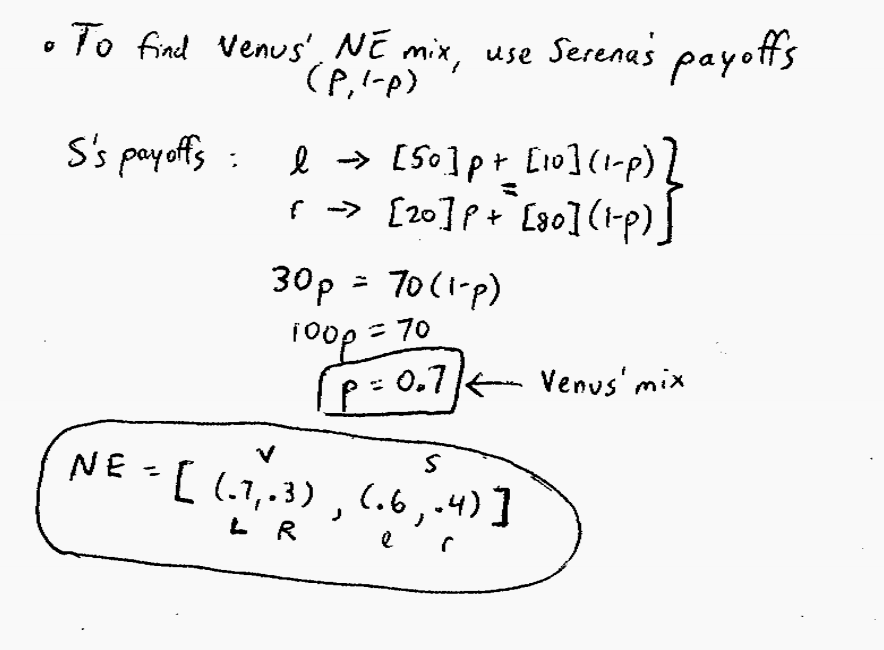 • To find Venus' NE mix, use Serena's payoffs
(P, 1-p)
S's payoffs : l → [50] p + [10] (1-p) }
=
r → [20] p + [80] (1-p)
30p = 70(1-p)
100p = 70
p = 0.7 ← Venus' mix
V S
NE = [ (.7, .3) , (.6, .4) ]
L R l r